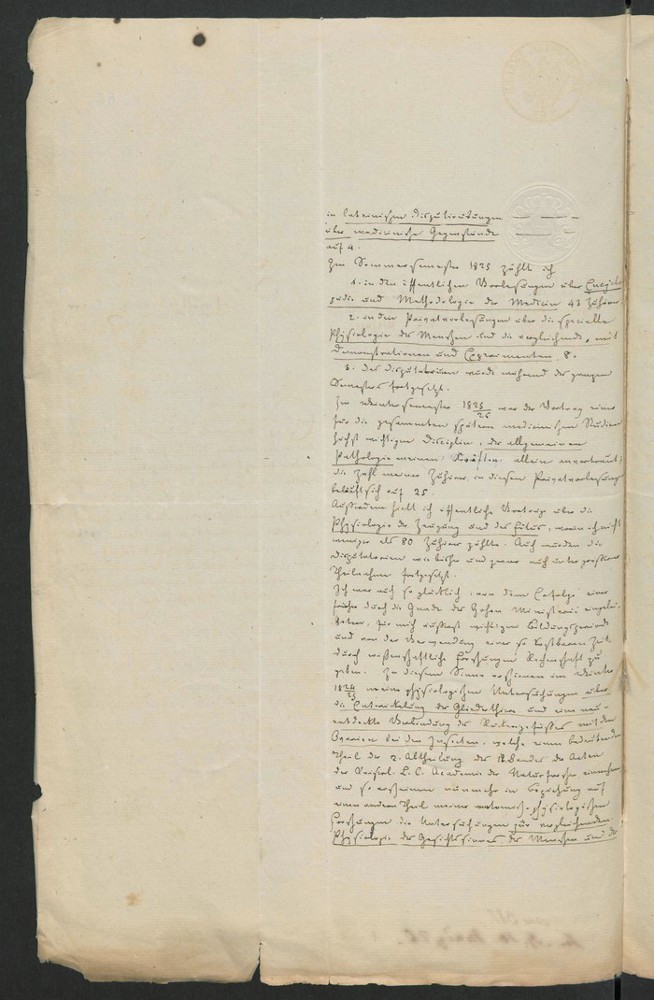 in lateinischen Disputirübungen — — —
über medicinische Gegenstände
auf 4.
Im Sommersemester 1825 zählte ich
1. in den öffentlichen Vorlesungen über Encyclo-
pädie und Methodologie der Medicin 43 Zuhörer
2. in den Privatvorlesungen über die specielle
Physiologie des Menschen und die vergleichende, mit
Demonstrationen und Experimenten, 8.
3. Das Disputatorium wurde während des ganzen
Semesters fortgesetzt.
Im Wintersemester 1825/26 war der Vortrag einer
für die gesammten spätern medicinischen Studien
höchst wichtigen Disciplin, der allgemeinen
Pathologie meinen Kräften allein anvertraut;
die Zahl meiner Zuhörer in diesen Privatvorlesungen
beläuft sich auf 25.
Außerdem hielt ich öffentliche Vorträge über die
Physiologie der Zeugung und des Fötus, worin ich nicht
weniger als 80 Zuhörer zählte. Auch wurden die
Disputatorien wie bisher und zwar auch unter großer
Theilnahme fortgesetzt.
Ich war auch so glücklich, von dem Erfolge einer
früher durch die Gnade des Hohen Ministerii
mich äußerst wichtigen Bildungsperiode
und von der Verwendung einer so kostbaren Zeit
durch wissenschaftliche Forschungen Rechenschaft zu
geben. In diesem Sinne erschienen im Winter
1824/25 meine physiologischen Untersuchungen über
die Entwickelung der Gliederthiere und eine neu-
entdeckte Verbindung des Rückengefäßes mit den
Ovarien bei den Insecten, welche einen bedeutenden
Theil der 2. Abtheilung des 12. Bandes der Acten
der Kaiserl. L. C. Academie der Naturforscher einnehmen
und so erscheinen nunmehr in Beziehung auf
einen andern Theil meiner anatomisch-physiologischen
Forschungen die Untersuchungen zur vergleichenden
Physiologie des Gesichtssinnes des Menschen und der